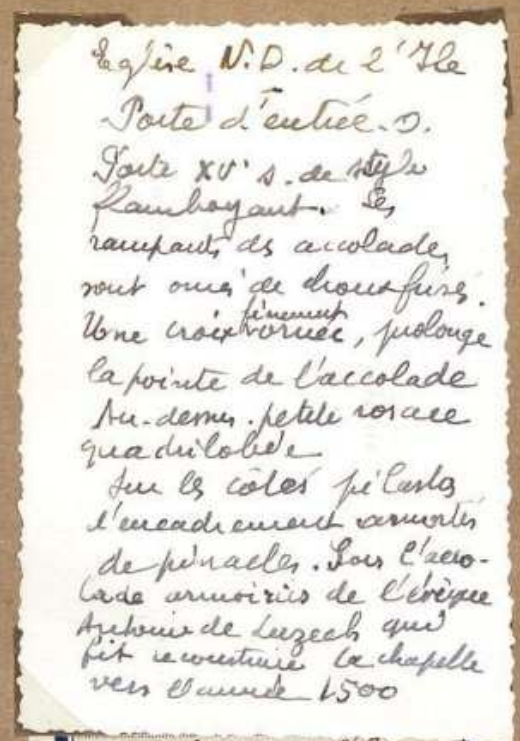 Eglise N.D. de l'Ile
Porte d'entrée. O.
Porte XVe s. de style
flamboyant. Les
rampants des accolades
sont ornés de choux frisés.
finement
Une croix ornée, prolonge
la pointe de l'accolade
Au-dessus. petite rosace
quadrilobée
Sur les côtés pilastres
l'encadrement amortis
de pinacles. Sous l'acco-
lade armoiries de l'évêque
Antoine de Luzech qui
fit reconstruire la chapelle
vers l'année 1500